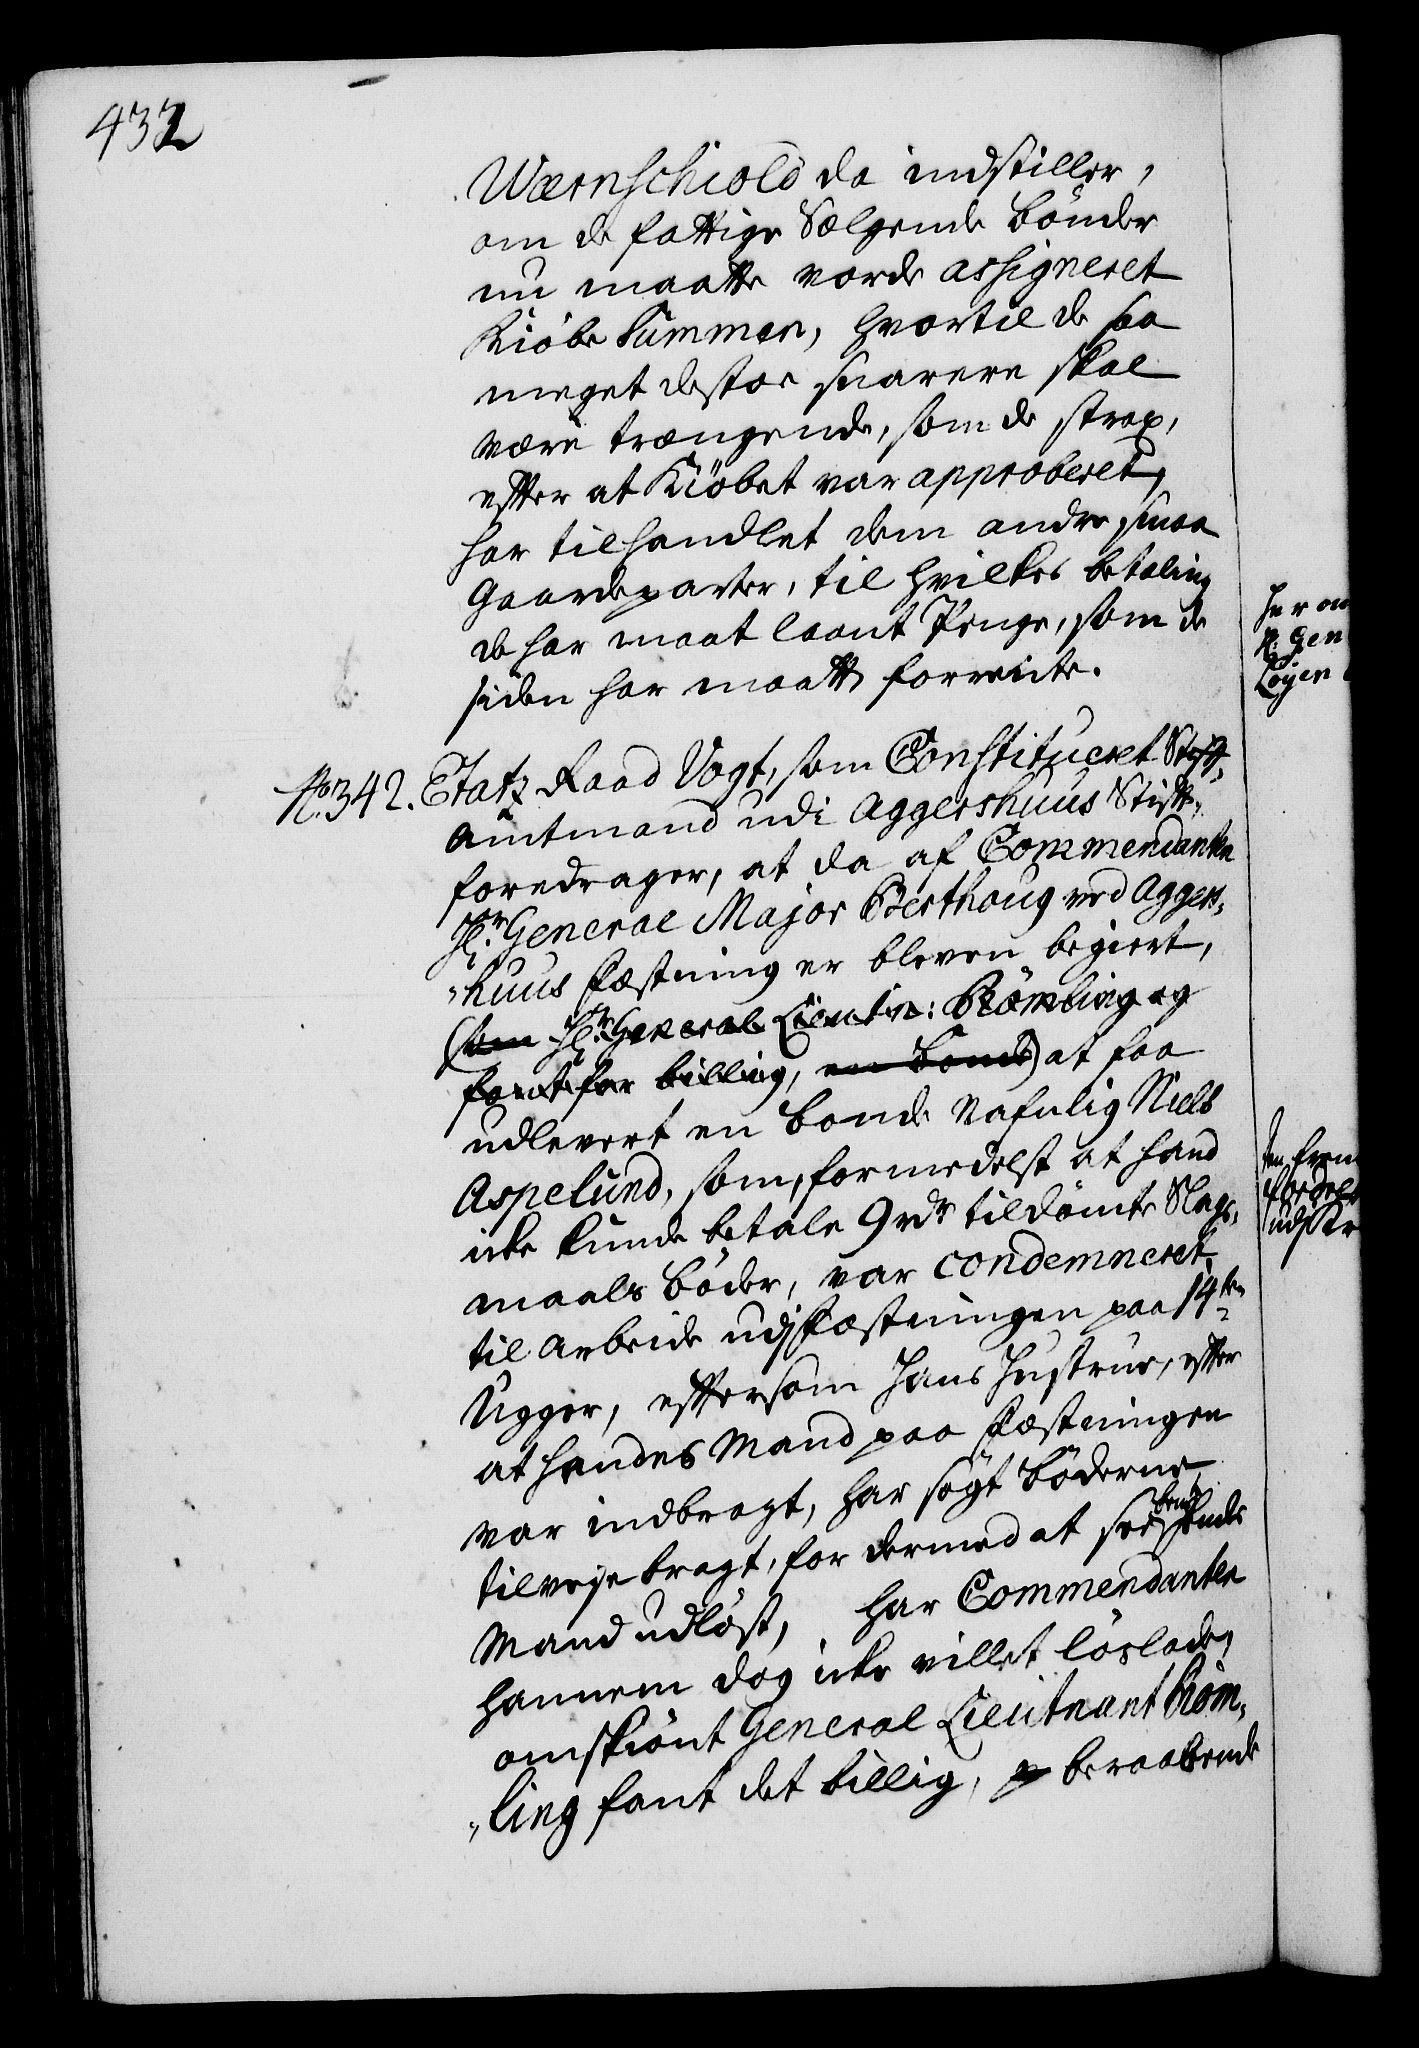 432
Wærnschiold da indstiller,
om de fattige Sælgende bönder
nu maatte vorde assigneret
Kiöbe Summen, hvortil de saa
meget destoe snarere skal
være trængende, som de strax,
efter at Kiöbet var approberet,
har tilhandlet dem andre smaa
Gaardeparter, til hvilkes betaling
de har maat laant Penge, som de
siden har maatt forrente.
No. 342. Etatz Raad Vogt, som Constitueret Stift,,
amtmand udi Aggershuus Stift,
foredrager, at da af Commendanten
Hr. General Major Berthoug ved Aggers,,
,,huus Fæstning er bleven begiert,
(som Hr. General Lieutn: Römling og
fandt for billig, en bonde) at faa
udlevert en bonde Nafnlig Niels
Aspelund, som, formedelst at hand
icke kunde betale 9 rdr tildömte Slags,,
maals böder, var condemneret
til Arbeide udj Fæstningen paa 14ten
Ugger, eftersom Hans Hustrue, efter
at hendes Mand paa Fæstningen
var indbragt, har sögt böderne
tilveje bragt, for dermed at see bem.te hendes
Mand udlöst, har Commendanten
hannem dog icke villet löslade,
omskiönt General Lieutnant Röm,,
,,ling fant det billig, beraabende
her om
Gen
Löyen
udj Kr